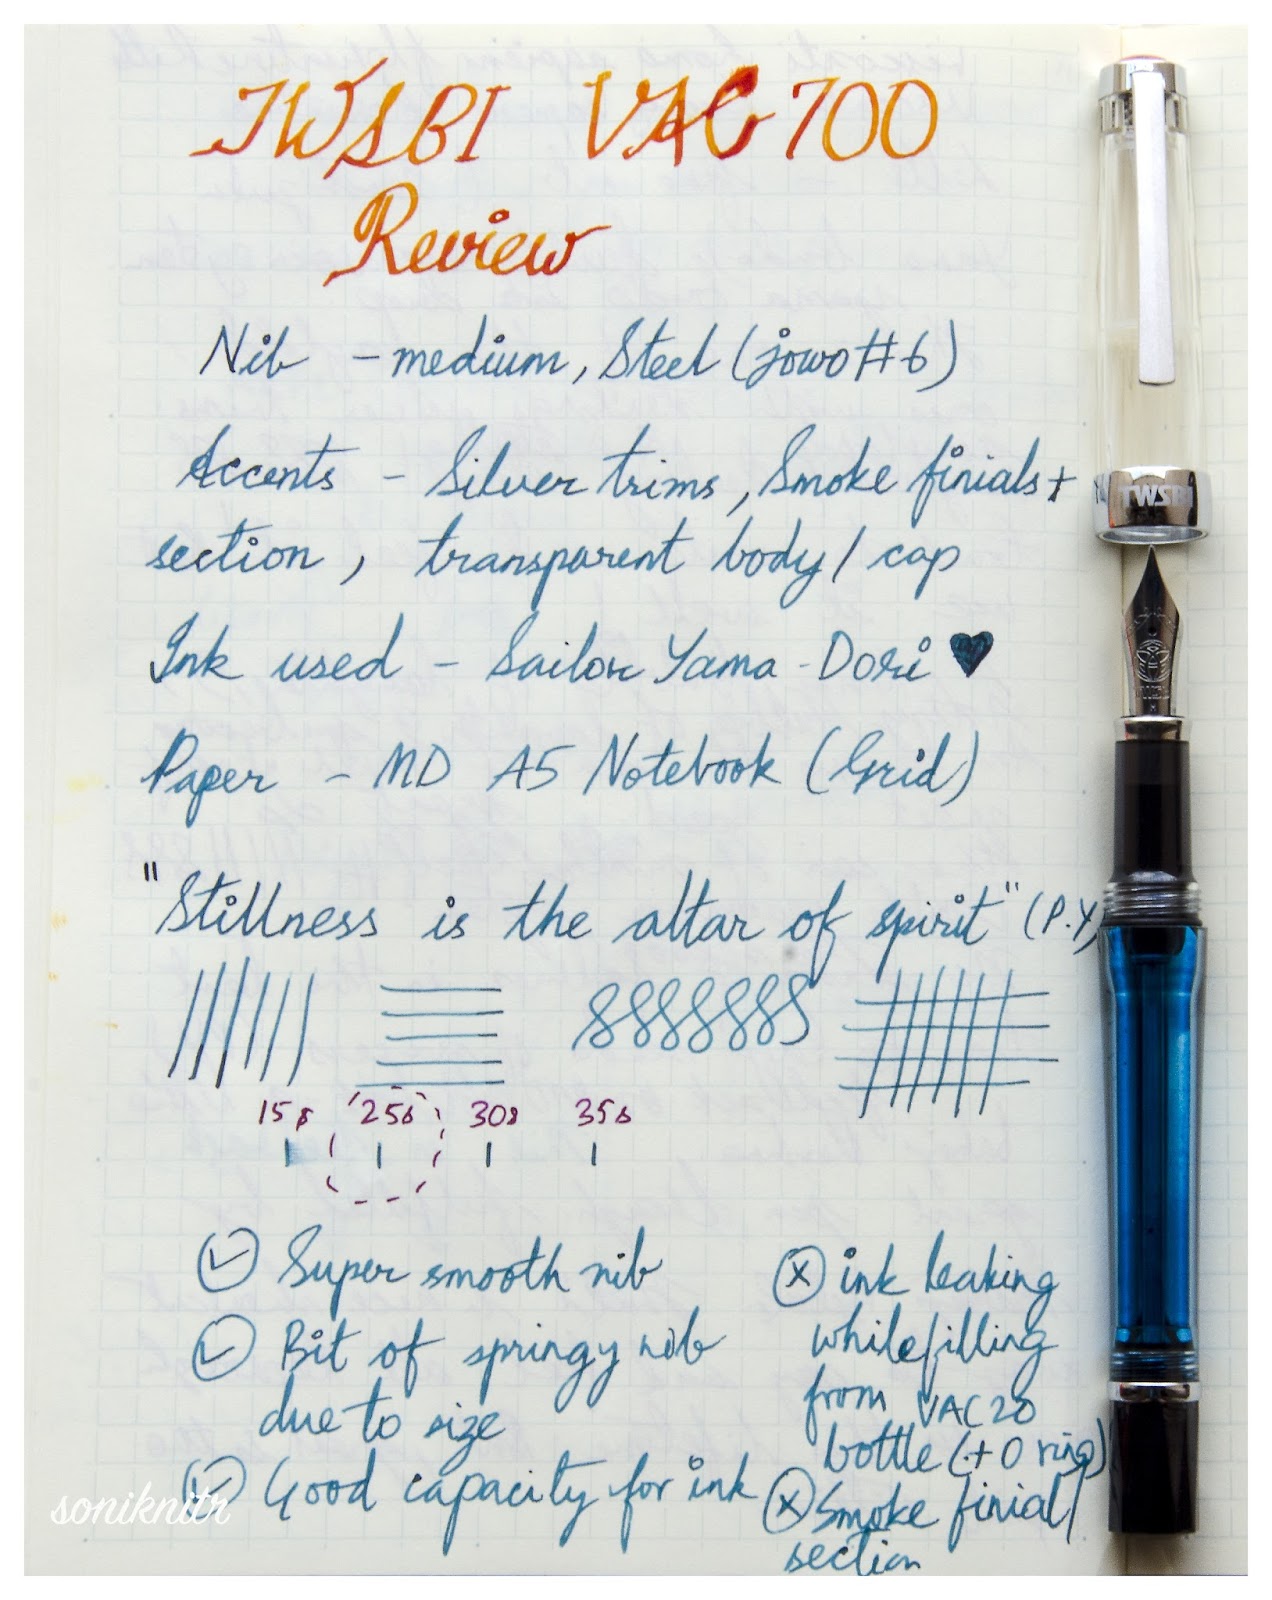 TWSBI VAC 700
Review
Nib - medium, Steel (jowo #6)
Accents - Silver trims, Smoke finials +
section, transparent body / cap
Ink used - Sailor Yama-Dori ♥
Paper - MD A5 Notebook (Grid)
"Stillness is the altar of spirit" (P.Y)
15s 25s 30s 35s
Super smooth nib
Bit of springy nib
due to size
Good capacity for ink
ink leaking
while filling
from VAC 20
bottle (+ O ring)
Smoke finial/
section
TWSBI
soniknitr